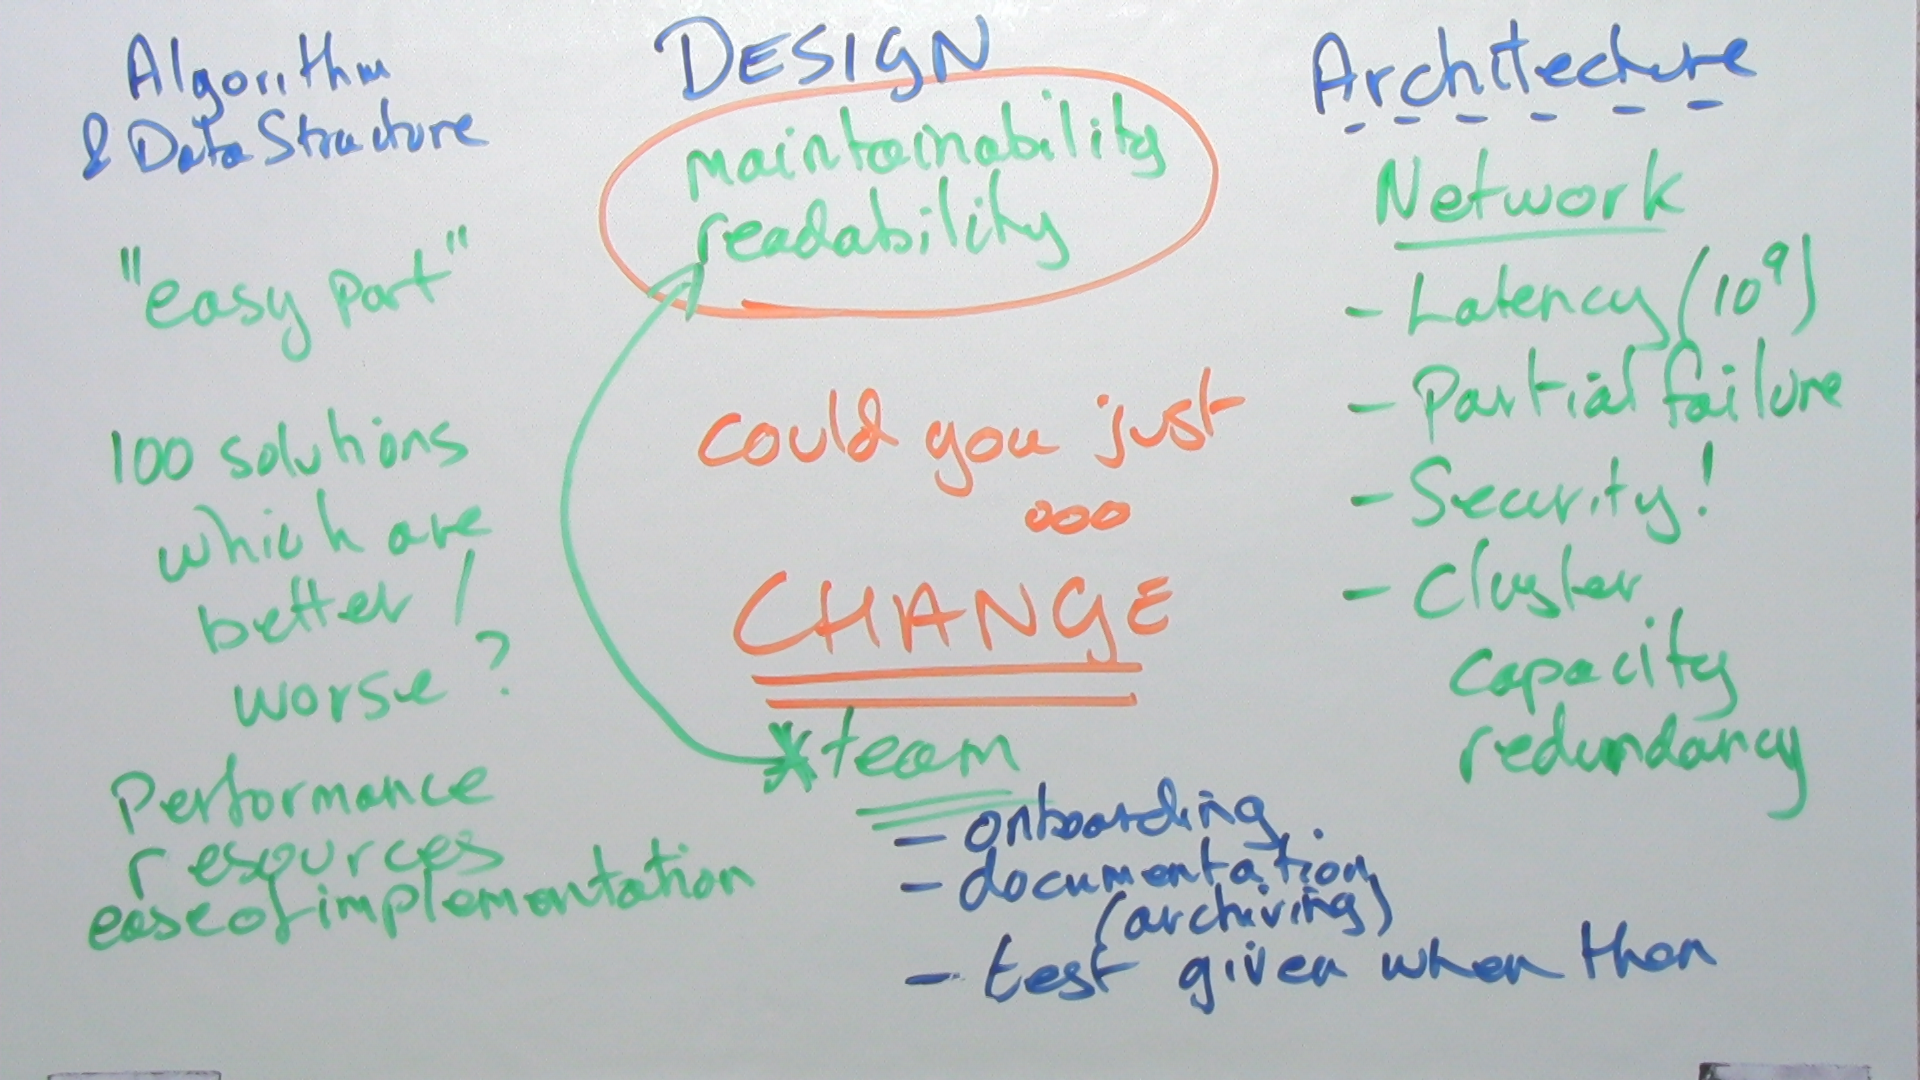 Algorithm
& Data Structure
"easy part"
100 solutions
which are
better /
worse?
Performance
resources
ease of implementation
DESIGN
maintainability
readability
could you just
ooo
CHANGE
* team
- onboarding
- documentation
(archiving)
- test given when then
Architecture
Network
- Latency (10⁹)
- Partial failure
- Security!
- Cluster
capacity
redundancy